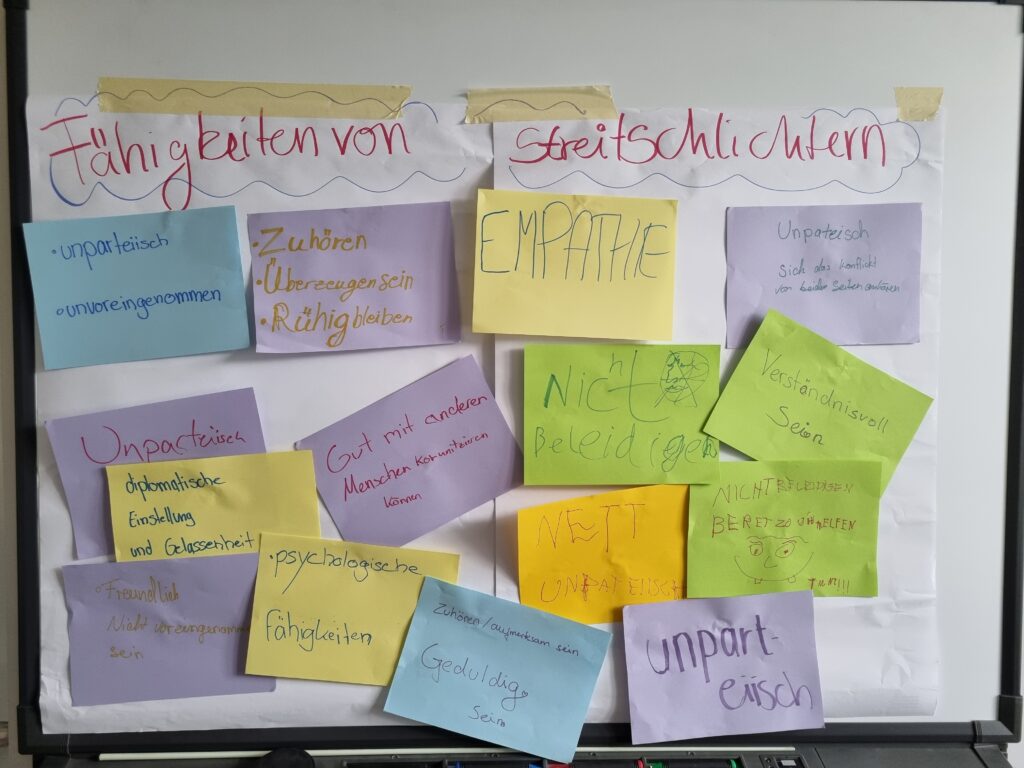 Fähigkeiten von Streitschlichtern
• unparteiisch
• unvoreingenommen
• Zuhören
• Überzeugen sein
• Rühig bleiben
EMPATHIE
Unpateiisch
Sich das Konflickt
von beiden Seiten anhören
Nicht
Beleidigen
Verständnisvoll
Sein
Unparteiisch
diplomatische
Einstellung
und Gelassenheit
Gut mit anderen
Menschen
können
NETT
UNPATEIISCH
NICHT BELEIDIGEN
BEREIT ZU HELFEN
• Freundlich
Nicht voreingenommen
sein
• psychologische
Fähigkeiten
Zuhören/aufmerksam sein
Geduldig
Sein
unpart-
eiisch